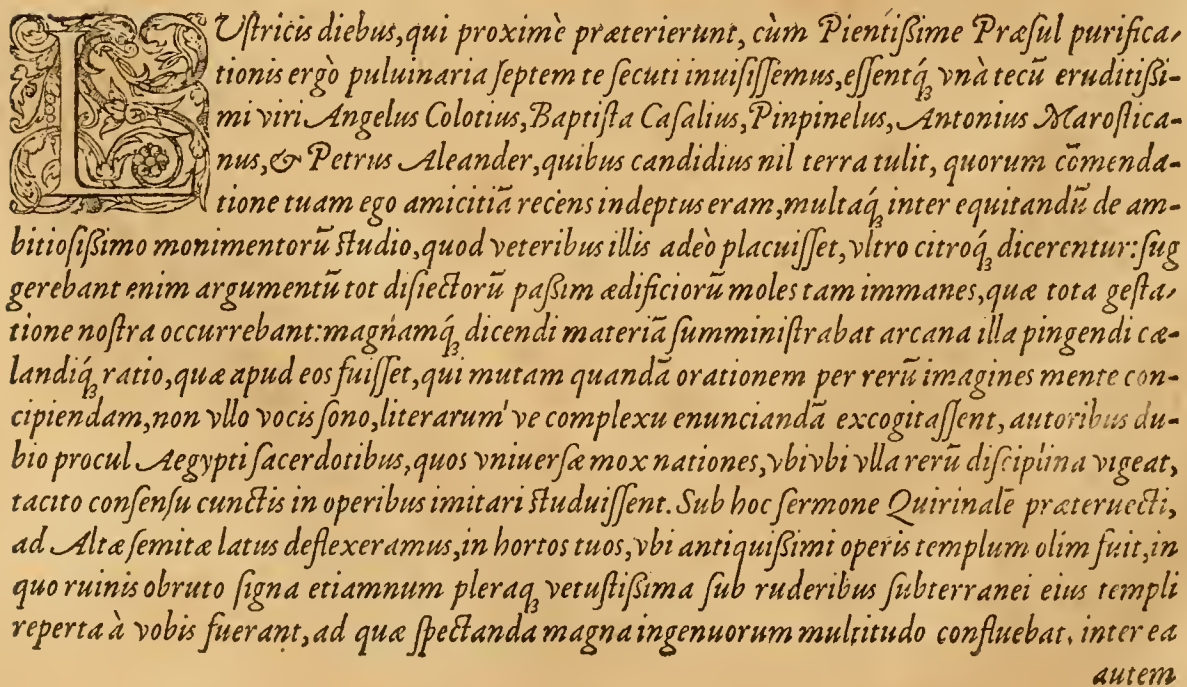 LVſtricis diebus, qui proximè præterierunt, cùm Pientißime Præſul purifica-
tionis ergò puluinaria ſeptem te ſecuti inuiſiſſemus, eſſentq́ꝫ vnà tecū eruditißi-
mi viri Angelus Colotius, Baptiſta Caſalius, Pinpinelus, Antonius Maroſtica-
nus, & Petrus Aleander, quibus candidius nil terra tulit, quorum cōmenda-
tione tuam ego amicitiā recens indeptus eram, multaq́ꝫ inter equitandū de am-
bitioſißimo monimentorū ſtudio, quod veteribus illis adeò placuiſſet, vltro citroq́ꝫ dicerentur: ſug
gerebant enim argumentū tot diſiectorū paßim ædificiorū moles tam immanes, quæ tota geſta-
tione noſtra occurrebant: magnamq́ꝫ dicendi materiā ſumminiſtrabat arcana illa pingendi cæ-
landiq́ꝫ ratio, quæ apud eos fuiſſet, qui mutam quandā orationem per rerū imagines mente con-
cipiendam, non vllo vocis ſono, literarum' ve complexu enunciandā excogitaſſent, autoribus du-
bio procul Aegypti ſacerdotibus, quos vniuerſæ mox nationes, vbivbi vlla rerū diſciplina vigeat,
tacito conſenſu cunctis in operibus imitari ſtuduiſſent. Sub hoc ſermone Quirinalē præteruecti,
ad Altæ ſemitæ latus deflexeramus, in hortos tuos, vbi antiquißimi operis templum olim fuit, in
quo ruinis obruto ſigna etiamnum pleraqꝫ vetuſtißima ſub ruderibus ſubterranei eius templi
reperta à vobis fuerant, ad quæ ſpectanda magna ingenuorum multitudo confluebat, inter ea
autem